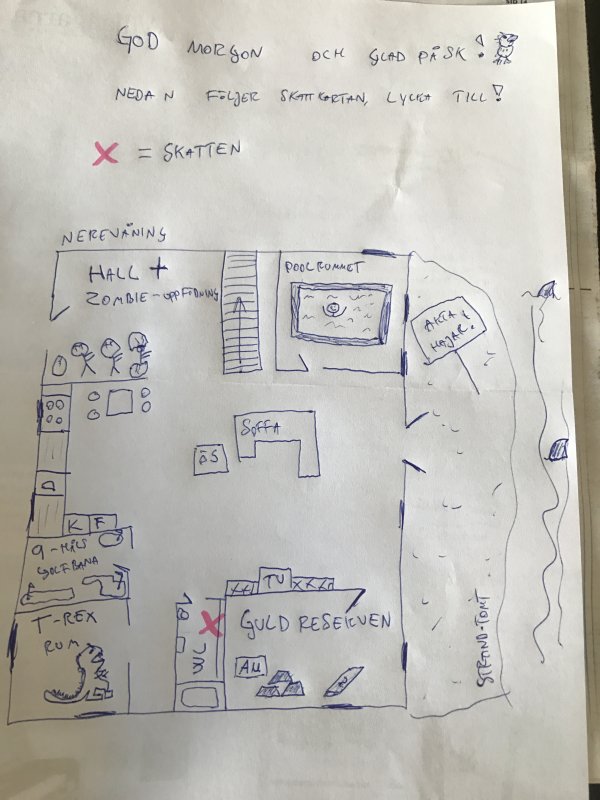 GOD MORGON OCH GLAD PÅSK!
NEDAN FÖLJER SKATTKARTAN, LYCKA TILL!
X = SKATTEN
NEREVÅNING
HALL +
ZOMBIE-UPPFÖDNING
POOLRUMMET
AKTA
HAJAR!
SOFFA
ÖS
K F
9-HÅLS
GOLFBANA
T-REX
RUM
TV
X
WC
GULD RESERVEN
AU
STRAND-TOMT